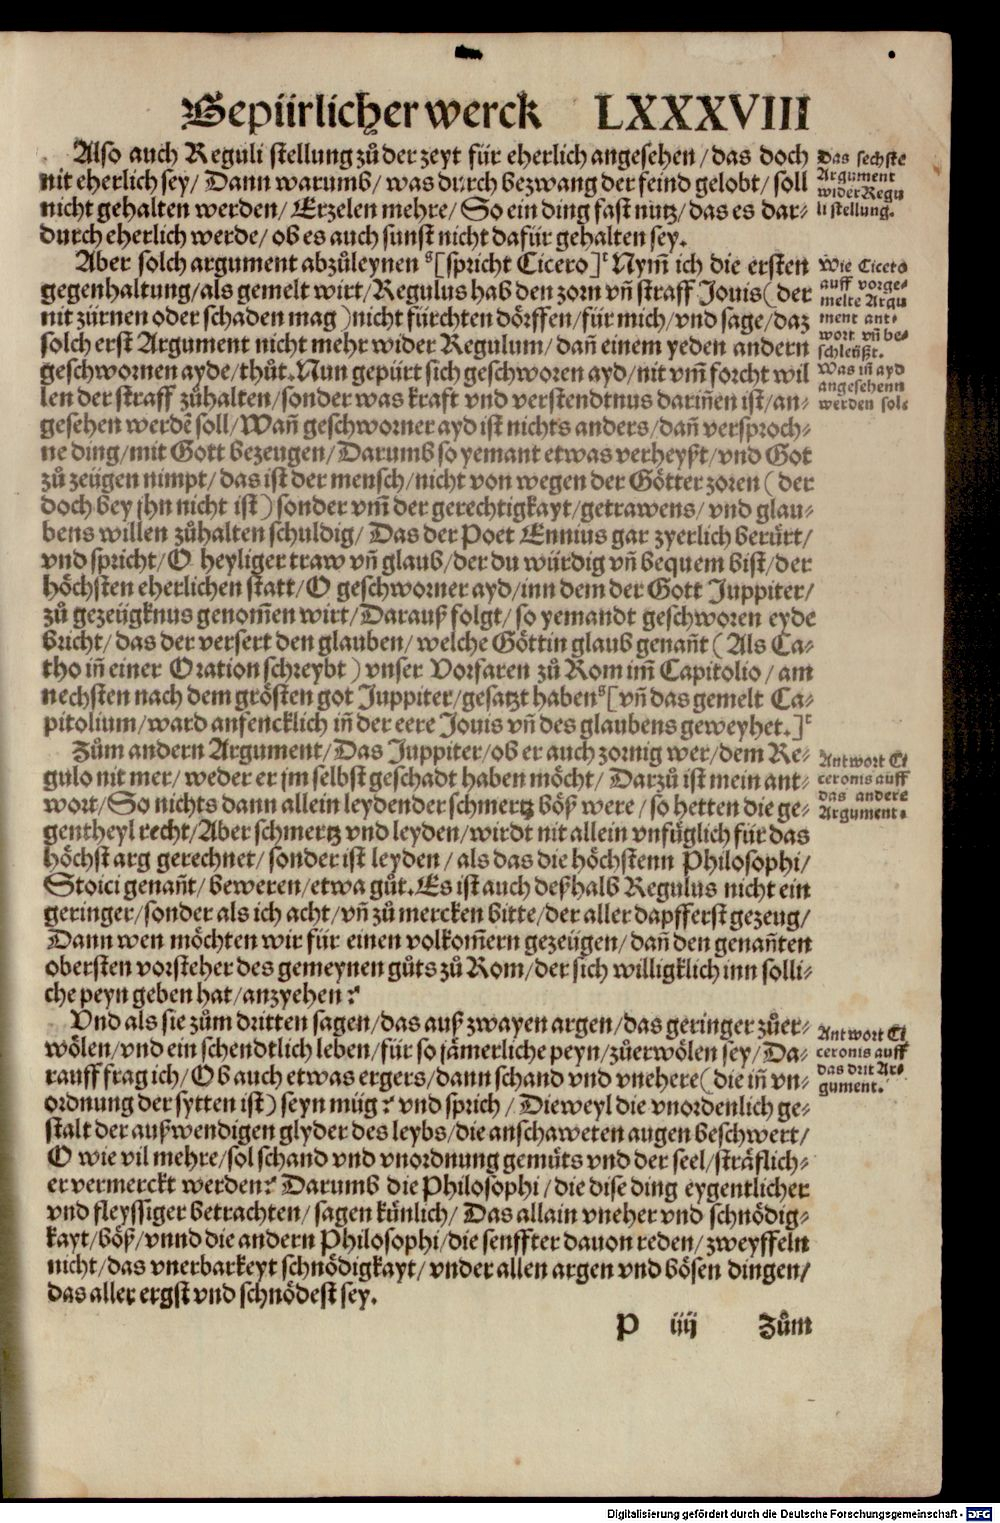 Gepürlicher werck LXXXVIII
Also auch Reguli stellung zů der zeyt für eherlich angesehen / das doch
nit eherlich sey / Dann warumb / was durch bezwang der feind gelobt / soll
nicht gehalten werden / Erzelen mehre / So ein ding fast nutz / das es dar⸗
durch eherlich werde / ob es auch sunst nicht dafür gehalten sey.
Das sechste
Argument
wider Regu
li stellung.
Aber solch argument abzůleynen [spricht Cicero] Nym̃ ich die ersten
gegenhaltung / als gemelt wirt / Regulus hab den zorn vñ straff Jouis (der
nit zürnen oder schaden mag) nicht fürchten dörffen / für mich / vnd sage / daz
solch erst Argument nicht mehr wider Regulum / dañ einem yeden andern
geschwornen ayde / thůt. Nun gepürt sich geschworen ayd / nit vm̃ forcht wil
len der straff zůhalten / sonder was kraft vnd verstendtnus dariñen ist / an⸗
gesehen werdẽ soll / Wañ geschworner ayd ist nichts anders / dañ versproch⸗
ne ding / mit Gott bezeugen / Darumb so yemant etwas verheyßt / vnd Got
zů zeügen nimpt / das ist der mensch / nicht von wegen der Götter zoren (der
doch bey jhn nicht ist) sonder vm̃ der gerechtigkayt / getrawens / vnd glau⸗
bens willen zůhalten schuldig / Das der Poet Ennius gar zyerlich berürt /
vnd spricht / O heyliger traw vñ glaub / der du würdig vñ bequem bist / der
höchsten eherlichen statt / O geschworner ayd / inn dem der Gott Juppiter /
zů gezeügknus genom̃en wirt / Darauß folgt / so yemandt geschworen eyde
bricht / das der versert den glauben / welche Göttin glaub genañt (Als Ca⸗
tho iñ einer Oration schreybt) vnser Vorfaren zů Rom im̃ Capitolio / am
nechsten nach dem grösten got Juppiter / gesatzt haben [vñ das gemelt Ca⸗
pitolium / ward anfencklich iñ der eere Jouis vñ des glaubens geweyhet.]
Wie Cicero
auff vorge⸗
melte Argu
ment ant⸗
wort vñ be⸗
schleüßt.
Was iñ ayd
angesehenn
werden sol.
Zům andern Argument / Das Juppiter / ob er auch zornig wer / dem Re⸗
gulo nit mer / weder er jm selbst geschadt haben möcht / Darzů ist mein ant⸗
wort / So nichts dann allein leyden der schmertz böß were / so hetten die ge⸗
gentheyl recht / Aber schmertz vnd leyden / wirdt nit allein vnfüglich für das
höchst arg gerechnet / sonder ist leyden / als das die höchstenn Philosophi /
Stoici genañt / beweren / etwa gůt. Es ist auch deßhalb Regulus nicht ein
geringer / sonder als ich acht / vñ zů mercken bitte / der aller dapfferst gezeug /
Dann wen möchten wir für einen volkom̃ern gezeügen / dañ den genañten
obersten vorsteher des gemeynen gůts zů Rom / der sich willigklich inn solli⸗
che peyn geben hat / anzyehen?
Antwort Ci
ceronis auff
das andere
Argument.
Vnd als sie zům dritten sagen / das auß zwayen argen / das geringer zůer⸗
wölen / vnd ein schendtlich leben / für so jämerliche peyn / zůerwölen sey / Da⸗
rauff frag ich / Ob auch etwas ergers / dann schand vnd vnehere (die iñ vn⸗
ordnung der sytten ist) seyn müg? vnd sprich / Dieweyl die vnordenlich ge⸗
stalt der außwendigen glyder des leybs / die anschaweten augen beschwert /
O wie vil mehre / sol schand vnd vnordnung gemüts vnd der seel / sträflich⸗
er vermerckt werden? Darumb die Philosophi / die dise ding eygentlicher
vnd fleyssiger betrachten / sagen künlich / Das allain vneher vnd schnödig⸗
kayt / böß / vnnd die andern Philosophi / die senffter dauon reden / zweyffeln
nicht / das vnerbarkeyt schnödigkayt / vnder allen argen vnd bösen dingen /
das aller ergst vnd schnödest sey.
Antwort Ci
ceronis auff
das drit Ar⸗
gument.
P iiij Zům
Digitalisierung gefördert durch die Deutsche Forschungsgemeinschaft - DFG